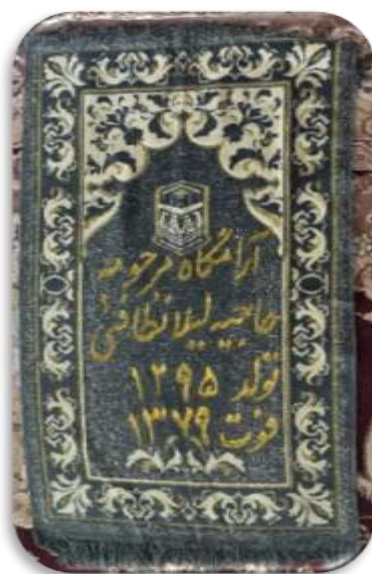 آرامگاه مرحومه
حاجیه لیلا نظافتی
تولد ۱۲۹۵
فوت ۱۳۷۹